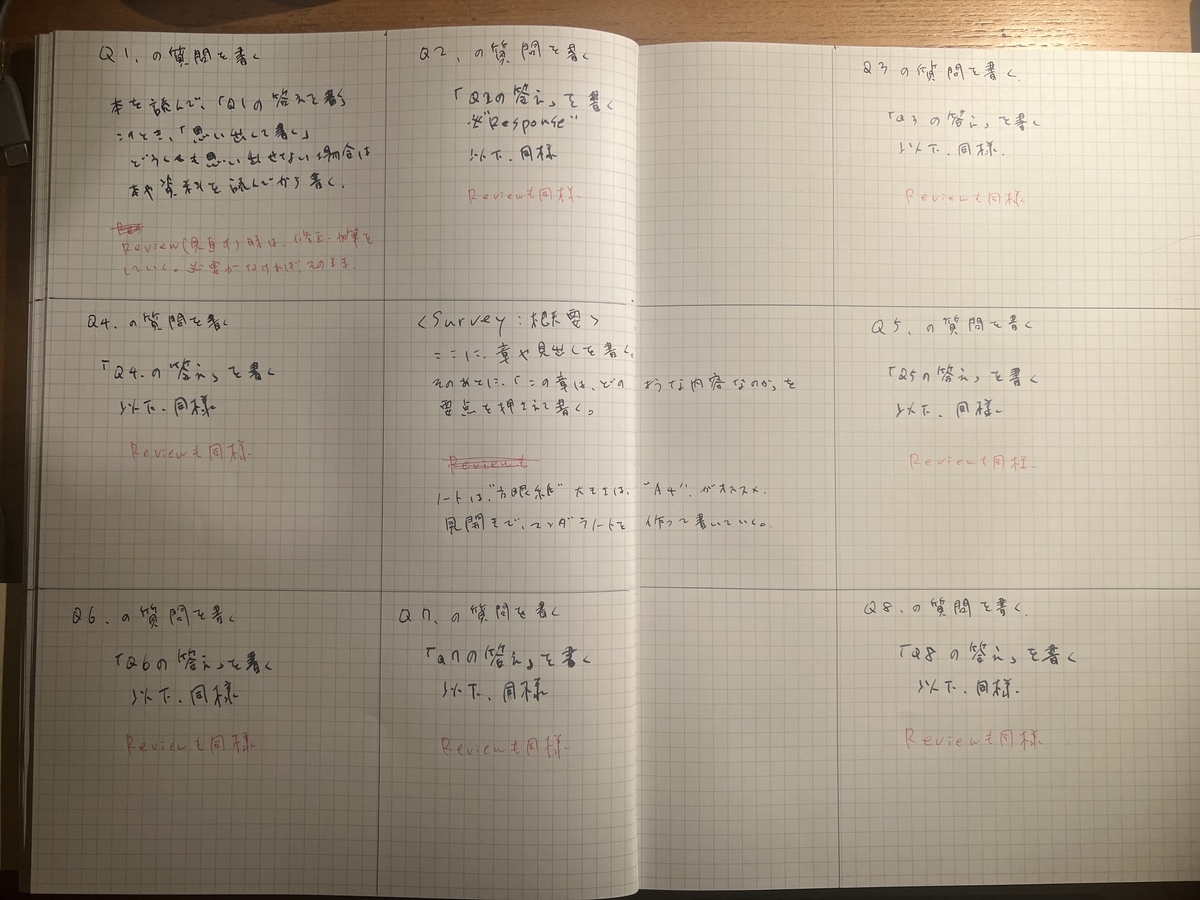 Q1、の質問を書く
本を読んで、「Q1の答えを書く」
このとき、「思い出して書く」
どうしても思い出せない場合は
本や資料を読んでから書く。
Review(見直す)時は、修正・加筆を
していく。必要がなければ、そのまま。
Q2、の質問を書く
「Q2の答え」を書く
※"Response"
以下、同様
Reviewも同様
Q3の質問を書く。
「Q3の答え」を書く
以下、同様。
Reviewも同様
Q4、の質問を書く
「Q4.の答え」を書く
以下、同様
Reviewも同様
<Survey:概要>
ここに、章や見出しを書く。
そのあとに、「この章は、どのような内容なのか」を
要点を押さえて書く。
ノートは、"方眼紙" 大きさは、"A4"、がオススメ。
見開きで、マンダラノートを作って書いていく。
Q5、の質問を書く
「Q5の答え」を書く
以下、同様
Reviewも同様
Q6、の質問を書く
「Q6の答え」を書く
以下、同様
Reviewも同様
Q7、の質問を書く
「Q7の答え」を書く
以下、同様
Reviewも同様
Q8、の質問を書く、
「Q8の答え」を書く
以下、同様、
Reviewも同様